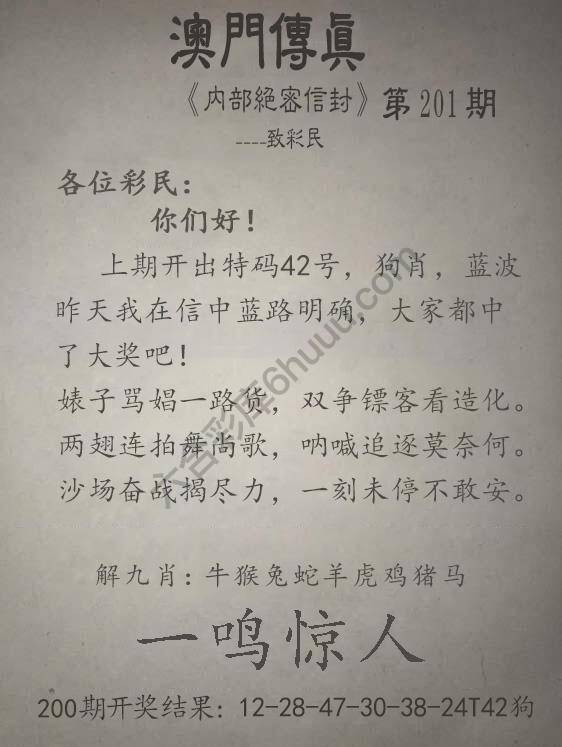 澳門傳真
《内部絕密信封》第201期
----致彩民
各位彩民：
你们好！
上期开出特码42号，狗肖，蓝波
昨天我在信中蓝路明确，大家都中
了大奖吧！
婊子骂娼一路货，双争镖客看造化。
两翅连拍舞尚歌，呐喊追逐莫奈何。
沙场奋战揭尽力，一刻未停不敢安。
六合彩库6huuu.com
解九肖：牛猴兔蛇羊虎鸡猪马
一鸣惊人
200期开奖结果：12-28-47-30-38-24T42狗